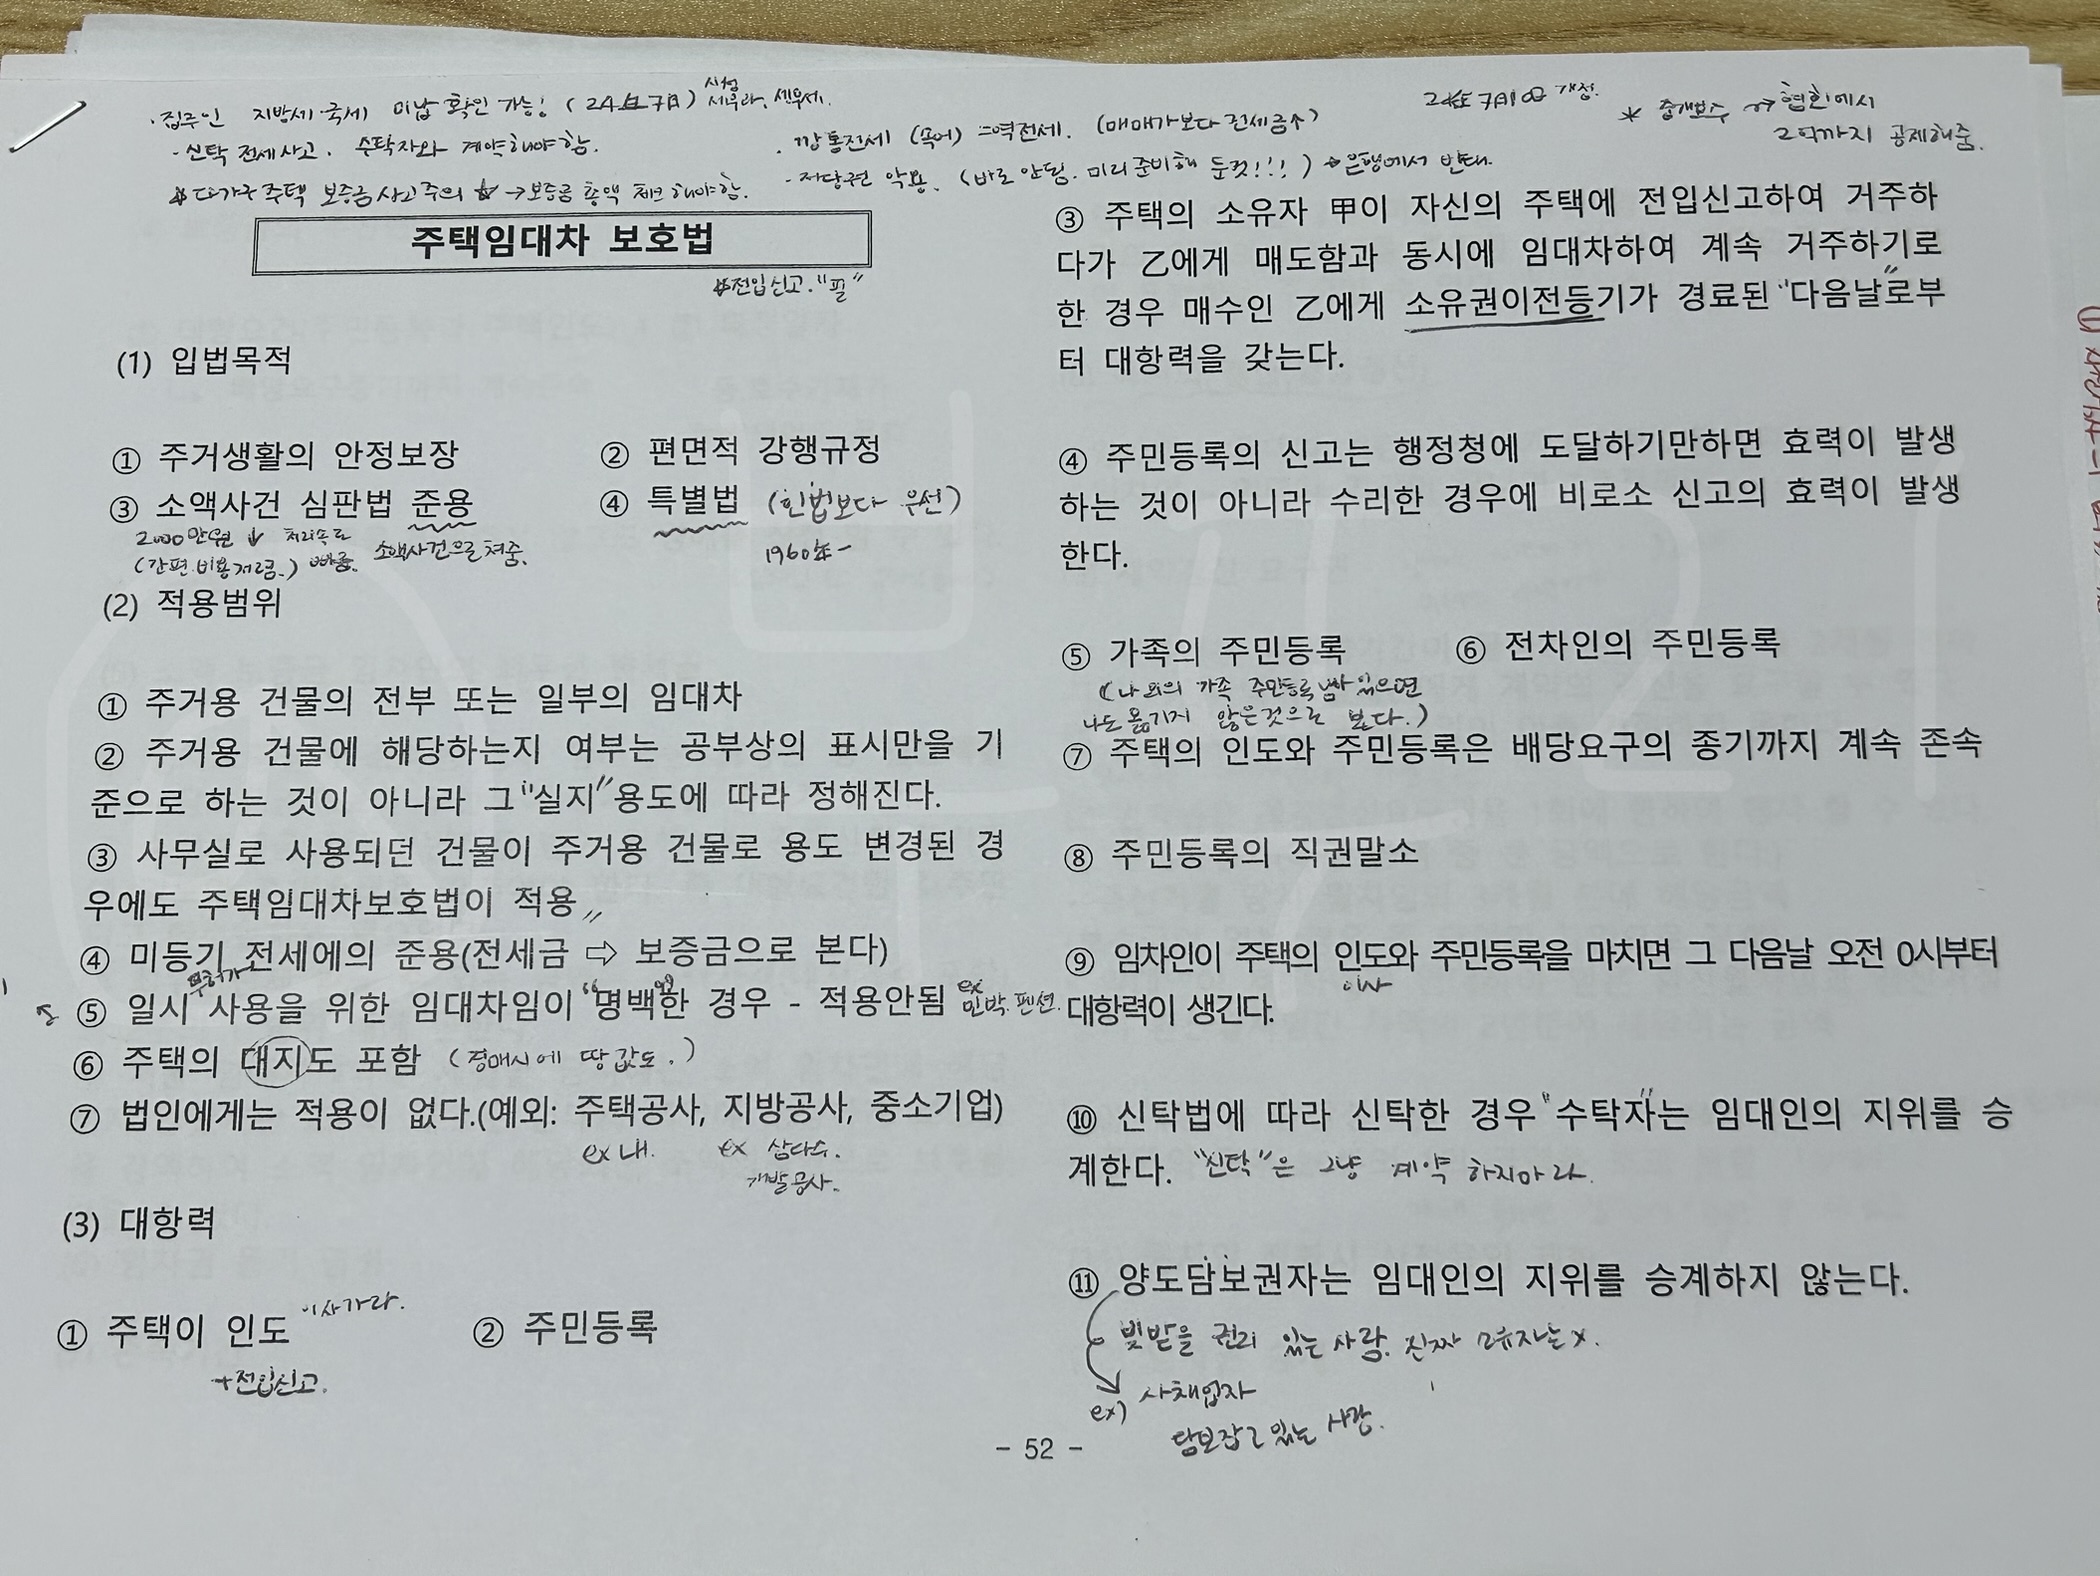 · 집주인 지방세·국세 미납 확인 가능! (24년 7月)
24年 7月10日 개정.
* 중개보수 → 협회에서
2억까지 공제해줌.
- 신탁 전세사고. 수탁자와 계약해야함.
· 깡통전세 (속어) = 역전세. (매매가보다 전세금↑)
다가구 주택 보증금사고주의 → 보증금 총액 체크해야함.
- 저당권 악용. (바로 안됨. 미리준비해 둔것!!!) 은행에서 반대.
주택임대차 보호법
전입신고. "필"
(1) 입법목적
① 주거생활의 안정보장 ② 편면적 강행규정
③ 소액사건 심판법 준용 ④ 특별법 (헌법보다 우선)
2000만원 ↓ 처리속도
(간편.비용저렴.) 빠름. 소액사건으로 쳐줌.
1960年-
(2) 적용범위
① 주거용 건물의 전부 또는 일부의 임대차
② 주거용 건물에 해당하는지 여부는 공부상의 표시만을 기
준으로 하는 것이 아니라 그 "실지" 용도에 따라 정해진다.
③ 사무실로 사용되던 건물이 주거용 건물로 용도 변경된 경
우에도 주택임대차보호법이 적용〃
④ 미등기 전세에의 준용(전세금 ⇨ 보증금으로 본다)
무허가
⑤ 일시 사용을 위한 임대차임이 "명백"한 경우 - 적용안됨 ex 민박.펜션.
⑥ 주택의 대지도 포함 (경매시에 땅값도.)
⑦ 법인에게는 적용이 없다.(예외: 주택공사, 지방공사, 중소기업)
ex 내. ex 삼다수.
개발공사.
(3) 대항력
① 주택이 인도 이사가라. ② 주민등록
+전입신고.
③ 주택의 소유자 甲이 자신의 주택에 전입신고하여 거주하
다가 乙에게 매도함과 동시에 임대차하여 계속 거주하기로
한 경우 매수인 乙에게 소유권이전등기가 경료된 "다음날"로부
터 대항력을 갖는다.
④ 주민등록의 신고는 행정청에 도달하기만하면 효력이 발생
하는 것이 아니라 수리한 경우에 비로소 신고의 효력이 발생
한다.
⑤ 가족의 주민등록 ⑥ 전차인의 주민등록
(나 외의 가족 주민등록 남아 있으면
나도 옮기지 않은것으로 본다.)
⑦ 주택의 인도와 주민등록은 배당요구의 종기까지 계속 존속
⑧ 주민등록의 직권말소
⑨ 임차인이 주택의 인도와 주민등록을 마치면 그 다음날 오전 0시부터
이사
대항력이 생긴다.
⑩ 신탁법에 따라 신탁한 경우 "수탁자"는 임대인의 지위를 승
계한다. "신탁"은 그냥 계약 하지마라.
⑪ 양도담보권자는 임대인의 지위를 승계하지 않는다.
빚받을 권리 있는 사람. 진짜 소유자는 x.
ex) 사채업자
담보잡고 있는 사람.
- 52 -